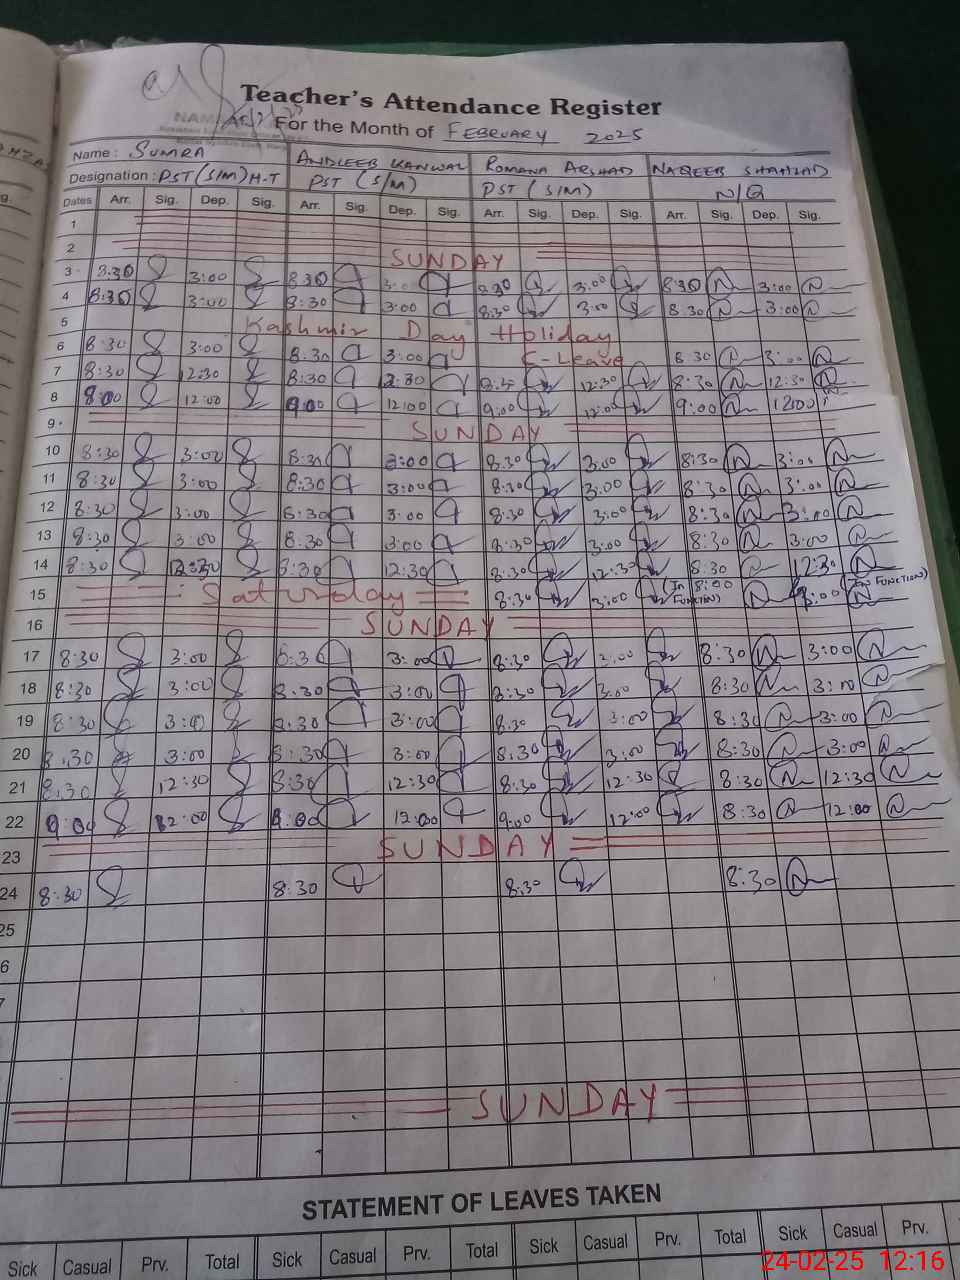 Teacher's Attendance Register
For the Month of FEBRUARY 2025
Name : SUMRA ANDLEEB KANWAL ROMANA ARSHAD NAQEEB SHAHZAD
Designation : PST (S/M) H-T PST (S/M) PST (S/M) N/Q
Dates Arr. Sig. Dep. Sig. Arr. Sig. Dep. Sig. Arr. Sig. Dep. Sig. Arr. Sig. Dep. Sig.
1
2 SUNDAY
3 8:30 3:00 8:30 3:00 8:30 3:00 8:30 3:00
4 8:30 3:00 8:30 3:00 8:30 3:00 8:30 3:00
5 Kashmir Day Holiday
6 8:30 3:00 8:30 3:00 C-Leave 8:30 3:00
7 8:30 12:30 8:30 12:30 8:30 12:30 8:30 12:30
8 8:00 12:00 9:00 12:00 9:00 12:00 9:00 12:00
9 SUNDAY
10 8:30 3:00 8:30 3:00 8:30 3:00 8:30 3:00
11 8:30 3:00 8:30 3:00 8:30 3:00 8:30 3:00
12 8:30 3:00 8:30 3:00 8:30 3:00 8:30 3:00
13 8:30 3:00 8:30 3:00 8:30 3:00 8:30 3:00
14 8:30 12:30 8:30 12:30 8:30 12:30 8:30 12:30
15 Saturday 8:30 3:00 (In FUNCTION) 8:00 :00 (IN FUNCTION)
16 SUNDAY
17 8:30 3:00 8:30 3:00 8:30 3:00 8:30 3:00
18 8:30 3:00 8:30 3:00 8:30 3:00 8:30 3:00
19 8:30 3:00 8:30 3:00 8:30 3:00 8:30 3:00
20 8:30 3:00 8:30 3:00 8:30 3:00 8:30 3:00
21 8:30 12:30 8:30 12:30 8:30 12:30 8:30 12:30
22 9:00 12:00 9:00 12:00 9:00 12:00 8:30 12:00
23 SUNDAY
24 8:30 8:30 8:30 8:30
25
6
7
SUNDAY
STATEMENT OF LEAVES TAKEN
Sick Casual Prv. Total Sick Casual Prv. Total Sick Casual Prv. Total Sick Casual Prv.
24-02-25 12:16